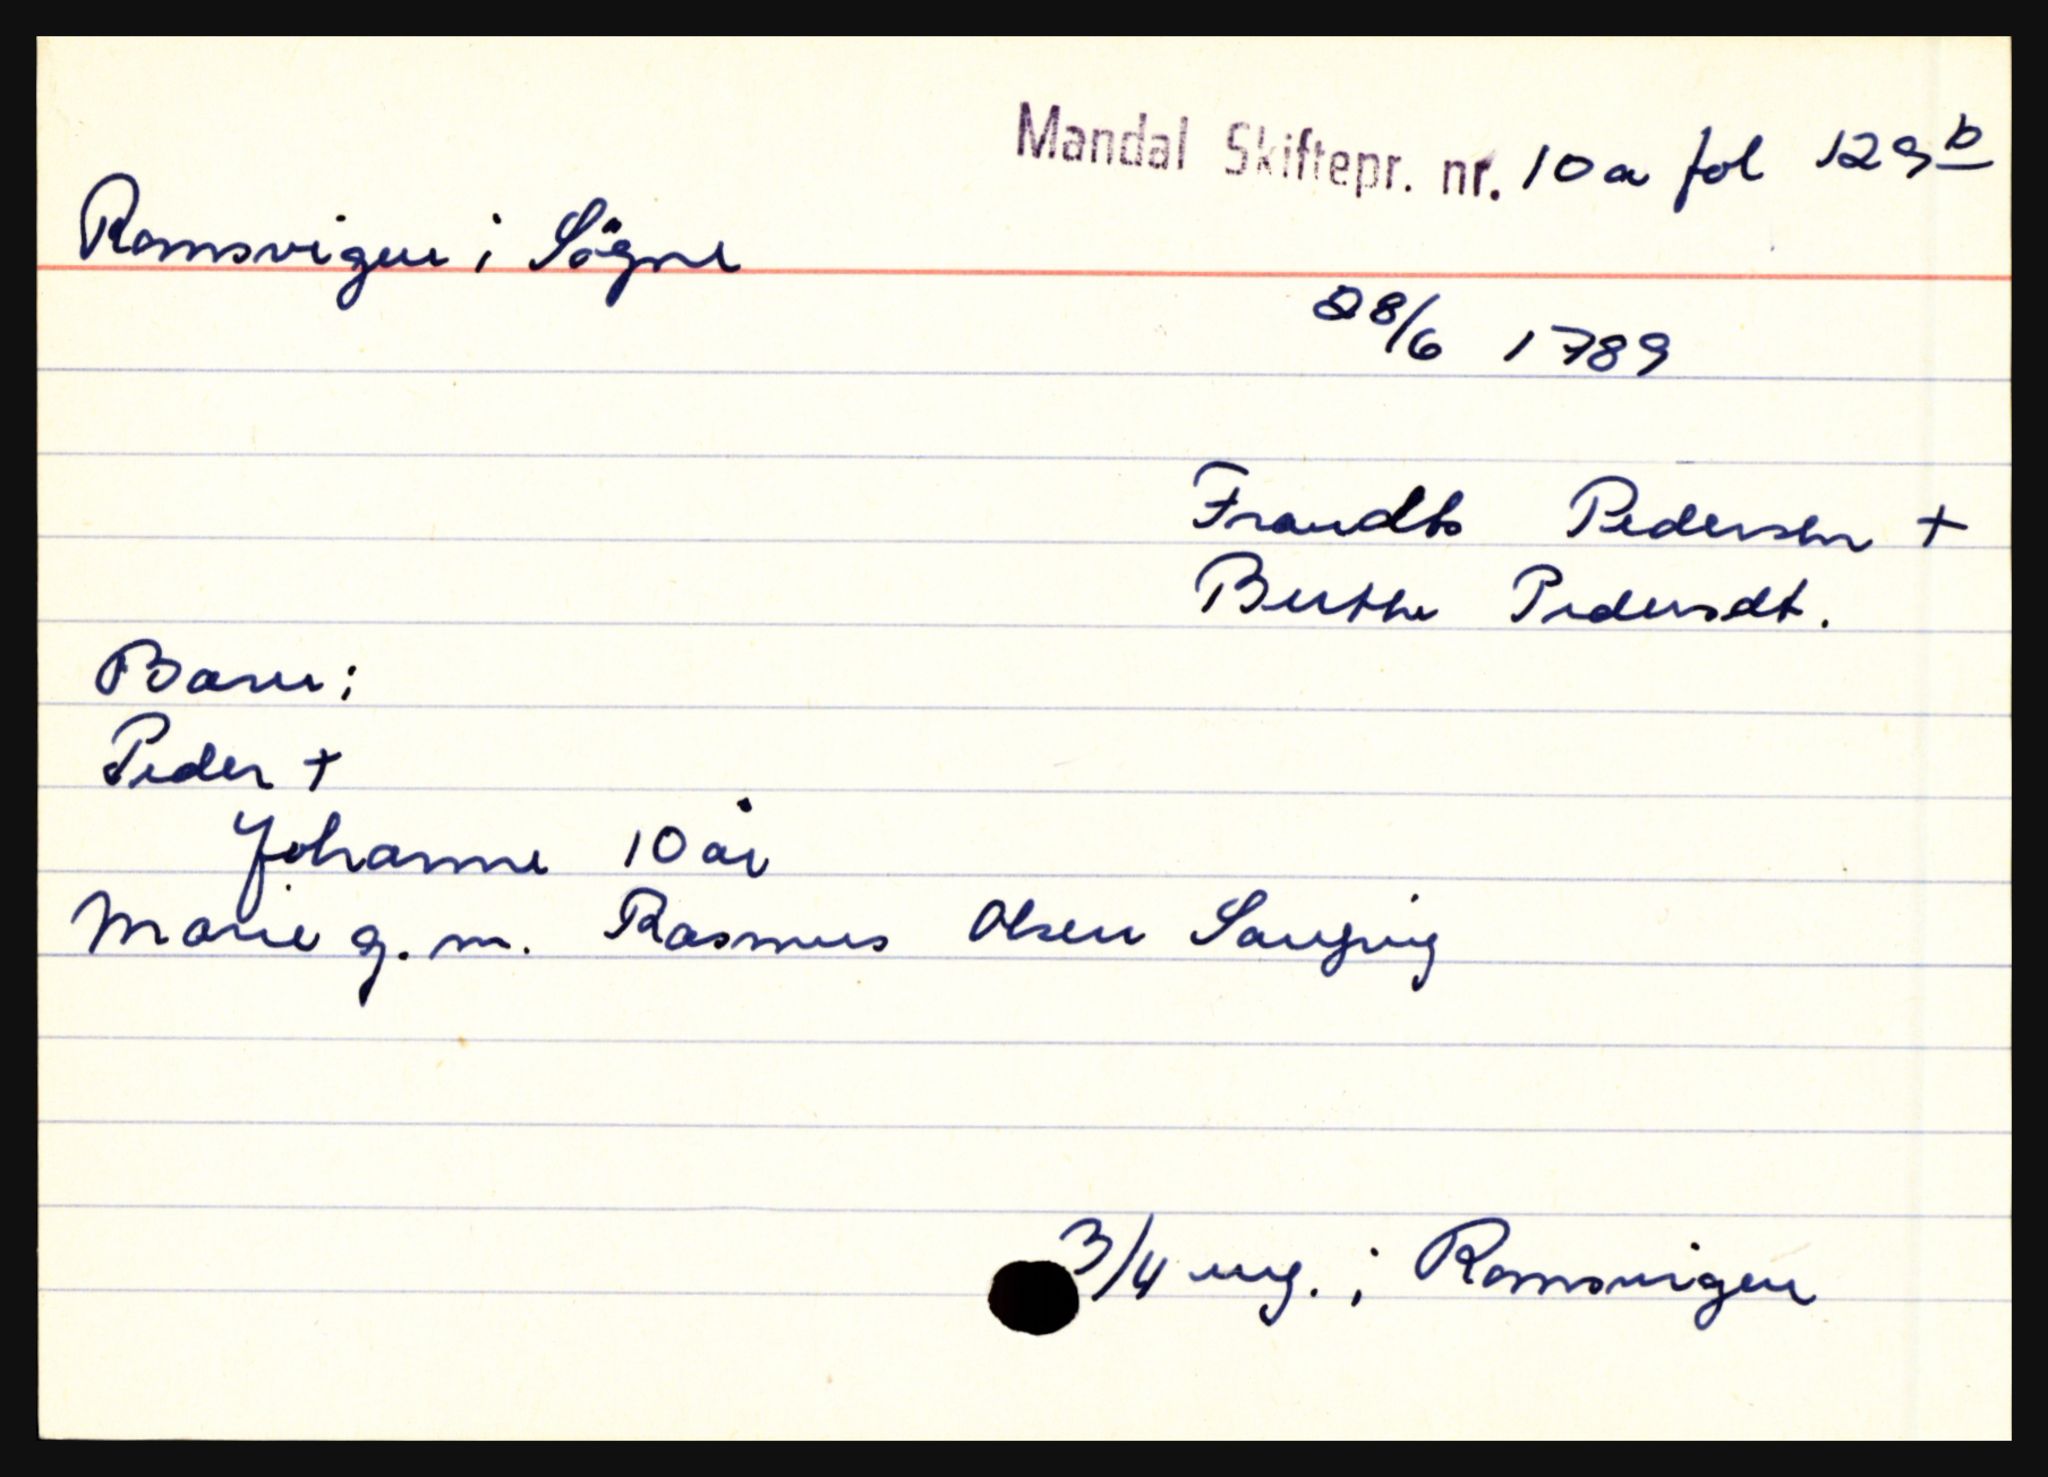 Mandal Skiftepr. nr. 10a fol 129b
Romsvigen i Sögne
28/6 1789
Frandts Pedersen +
Berthe Pedersdt.
Barn:
Peder +
Johanne 10 år
Marie g. m. Rasmus Olsen Langvig
3/4 eng. i Romsvigen